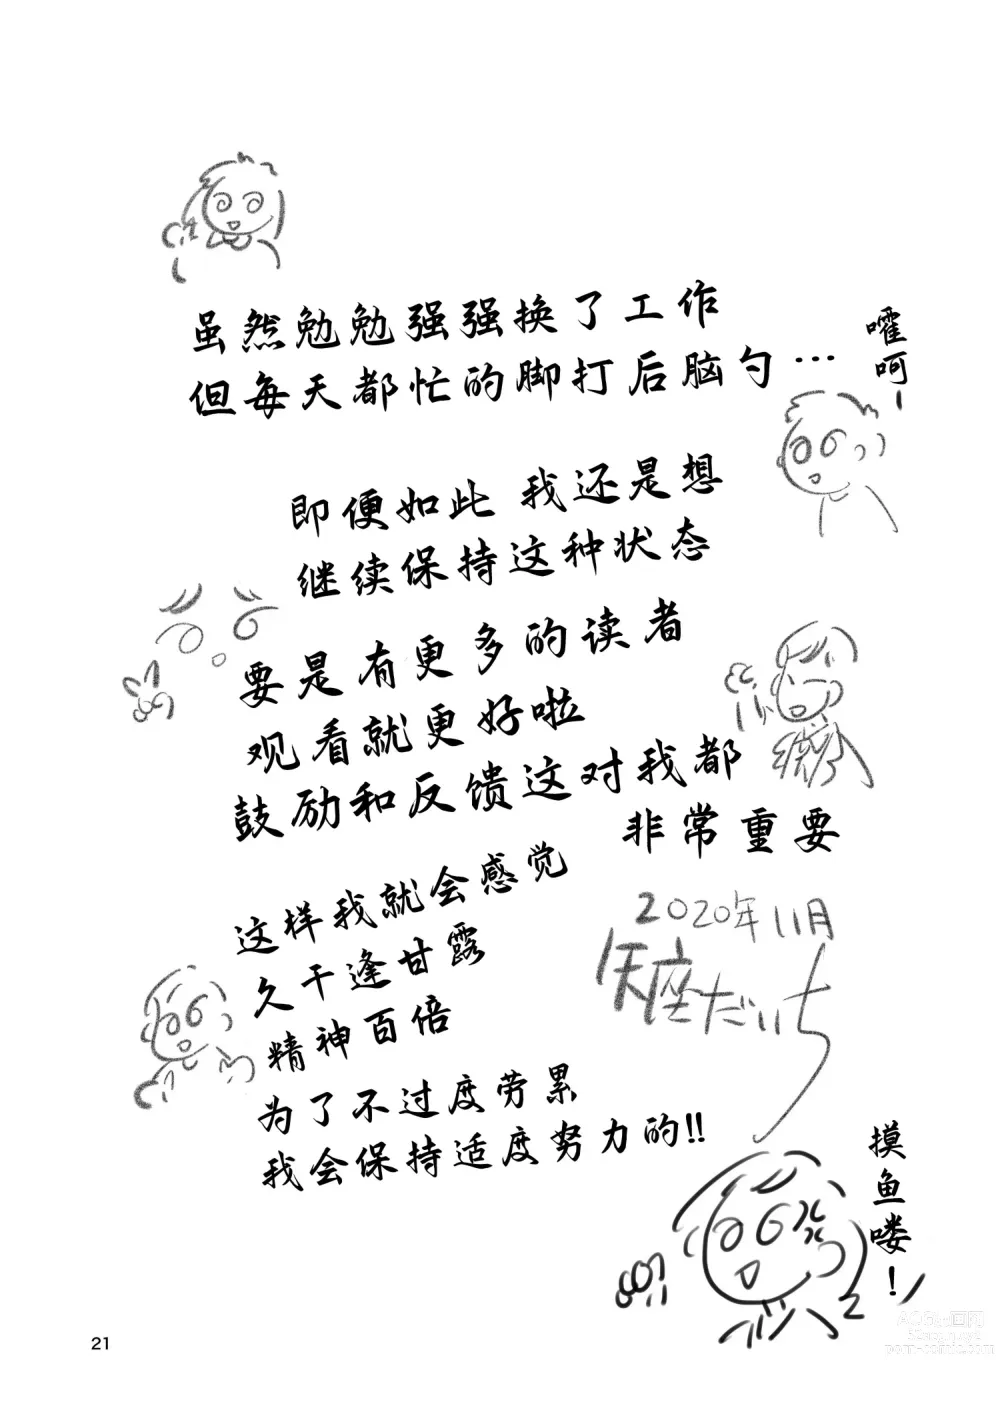 虽然勉勉强强换了工作
但每天都忙的脚打后脑勺…
嚯呵~
即便如此 我还是想
继续保持这种状态
要是有更多的读者
观看就更好啦
鼓励和反馈这对我都
非常重要
这样我就会感觉
久干逢甘露
精神百倍
为了不过度劳累
我会保持适度努力的!!
2020年11月
矢座だいち
摸鱼喽!
21